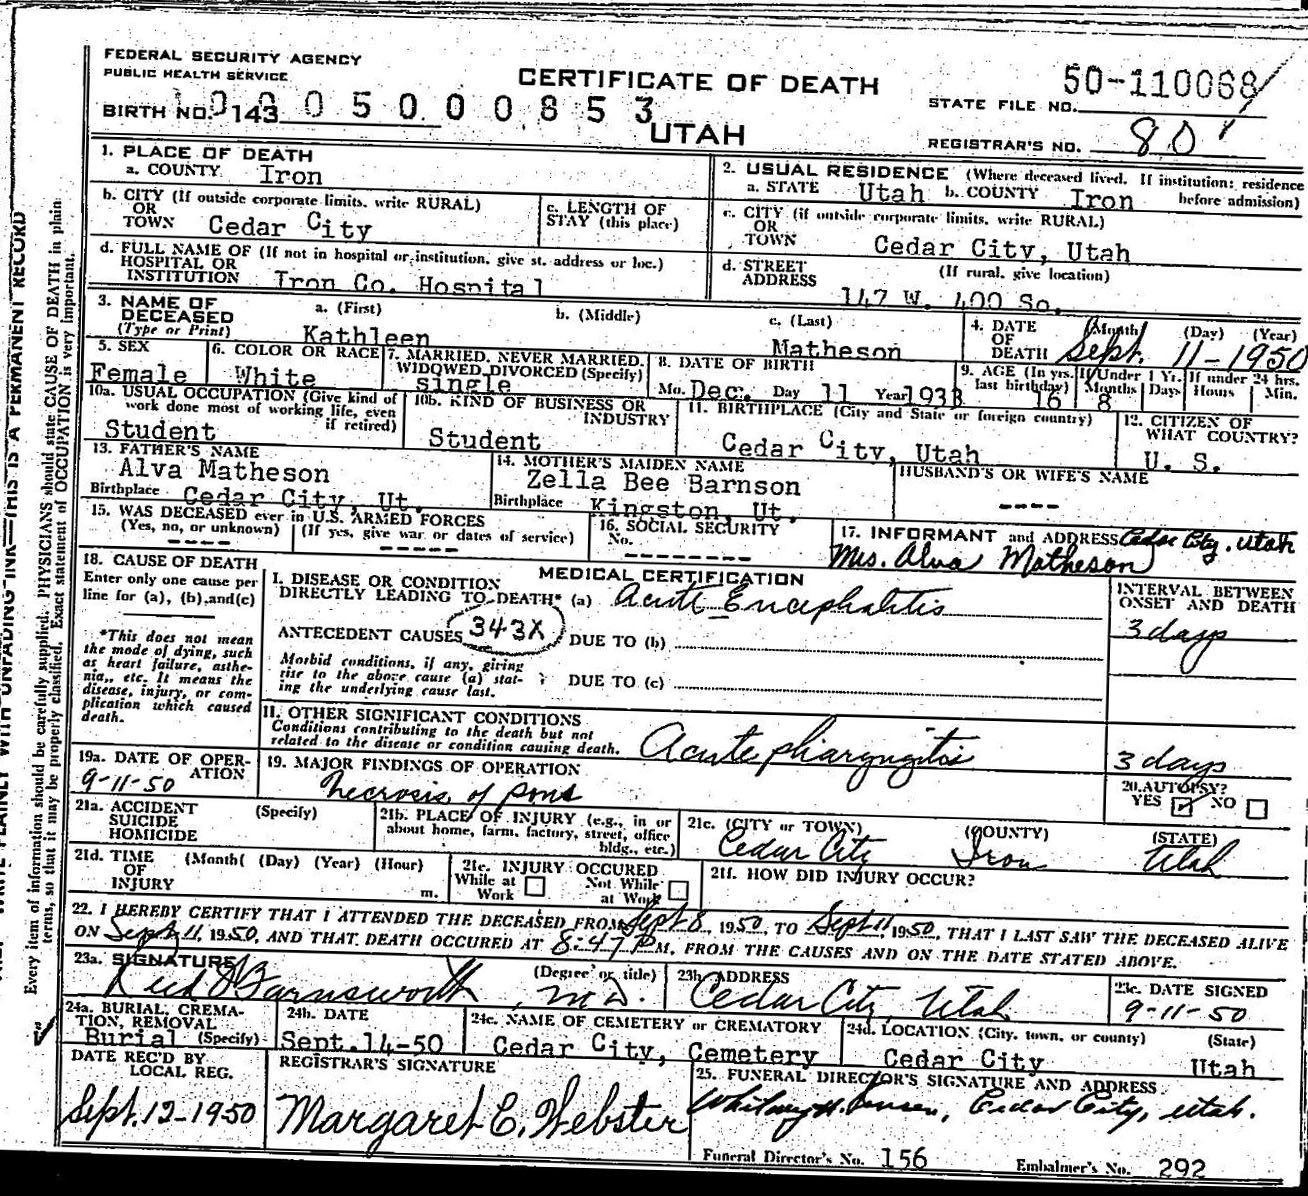 FEDERAL SECURITY AGENCY
PUBLIC HEALTH SERVICE
CERTIFICATE OF DEATH
UTAH
STATE FILE NO. 50-110068
BIRTH NO. 143 0 5 0 0 0 8 5 3
REGISTRAR'S NO. 80
1. PLACE OF DEATH
a. COUNTY Iron
b. CITY (If outside corporate limits, write RURAL)
OR
TOWN Cedar City
c. LENGTH OF
STAY (this place)
d. FULL NAME OF (If not in hospital or institution, give st. address or loc.)
HOSPITAL OR
INSTITUTION Iron Co. Hospital
2. USUAL RESIDENCE (Where deceased lived. If institution: residence
before admission)
a. STATE Utah b. COUNTY Iron
c. CITY (if outside corporate limits, write RURAL)
OR
TOWN Cedar City, Utah
d. STREET (If rural, give location)
ADDRESS 147 W. 400 So.
3. NAME OF
DECEASED
(Type or Print)
a. (First) b. (Middle) c. (Last)
Kathleen Matheson
4. DATE (Month) (Day) (Year)
OF
DEATH Sept. 11-1950
5. SEX
Female
6. COLOR OR RACE
White
7. MARRIED, NEVER MARRIED,
WIDOWED, DIVORCED (Specify)
single
8. DATE OF BIRTH
Mo. Dec. Day 11 Year 1933
9. AGE (In yrs. last birthday) 16
If Under 1 Yr. Months 8 Days
If under 24 hrs. Hours Min.
10a. USUAL OCCUPATION (Give kind of
work done most of working life, even
if retired)
Student
10b. KIND OF BUSINESS OR
INDUSTRY
Student
11. BIRTHPLACE (City and State or foreign country)
Cedar City, Utah
12. CITIZEN OF
WHAT COUNTRY?
U. S.
13. FATHER'S NAME
Alva Matheson
Birthplace Cedar City, Ut.
14. MOTHER'S MAIDEN NAME
Zella Bee Barnson
Birthplace Kingston, Ut.
HUSBAND'S OR WIFE'S NAME
----
15. WAS DECEASED ever in U.S. ARMED FORCES
(Yes, no, or unknown) (If yes, give war or dates of service)
---- -----
16. SOCIAL SECURITY
No. -------
17. INFORMANT and ADDRESS Cedar City, Utah
Mrs. Alva Matheson
18. CAUSE OF DEATH
Enter only one cause per
line for (a), (b) and (c)
*This does not mean
the mode of dying, such
as heart failure, asthe-
nia, etc. It means the
disease, injury, or com-
plication which caused
death.
MEDICAL CERTIFICATION
I. DISEASE OR CONDITION
DIRECTLY LEADING TO DEATH* (a) Acute Encephalitis
ANTECEDENT CAUSES 343X DUE TO (b)
Morbid conditions, if any, giving
rise to the above cause (a) stat-
ing the underlying cause last.
DUE TO (c)
INTERVAL BETWEEN
ONSET AND DEATH
3 days
II. OTHER SIGNIFICANT CONDITIONS
Conditions contributing to the death but not
related to the disease or condition causing death.
Acute pharyngitis
3 days
19a. DATE OF OPER-
ATION
9-11-50
19. MAJOR FINDINGS OF OPERATION
Necrosis of pons
20. AUTOPSY?
YES NO
21a. ACCIDENT (Specify)
SUICIDE
HOMICIDE
21b. PLACE OF INJURY (e.g., in or
about home, farm, factory, street, office
bldg., etc.)
21c. (CITY or TOWN) (COUNTY) (STATE)
Cedar City Iron Utah
21d. TIME (Month) (Day) (Year) (Hour)
OF
INJURY m.
21e. INJURY OCCURED
While at Work Not While at Work
21f. HOW DID INJURY OCCUR?
22. I HEREBY CERTIFY THAT I ATTENDED THE DECEASED FROM Sept 8, 1950, TO Sept 11 1950, THAT I LAST SAW THE DECEASED ALIVE
ON Sept 11, 1950, AND THAT DEATH OCCURED AT 8:47 P.M. FROM THE CAUSES AND ON THE DATE STATED ABOVE.
23a. SIGNATURE (Degree or title)
Farnsworth M.D.
23b. ADDRESS
Cedar City, Utah
23c. DATE SIGNED
9-11-50
24a. BURIAL, CREMA-
TION, REMOVAL
Burial (Specify)
24b. DATE
Sept.14-50
24c. NAME OF CEMETERY or CREMATORY
Cedar City, Cemetery
24d. LOCATION (City, town, or county) (State)
Cedar City Utah
DATE REC'D BY
LOCAL REG.
Sept. 12-1950
REGISTRAR'S SIGNATURE
Margaret E. Webster
25. FUNERAL DIRECTOR'S SIGNATURE AND ADDRESS
Cedar City, Utah.
Funeral Director's No. 156 Embalmer's No. 292
WRITE PLAINLY WITH UNFADING INK—THIS IS A PERMANENT RECORD
Every item of information should be carefully supplied. PHYSICIANS should state CAUSE OF DEATH in plain
terms, so that it may be properly classified. Exact statement of OCCUPATION is very important.